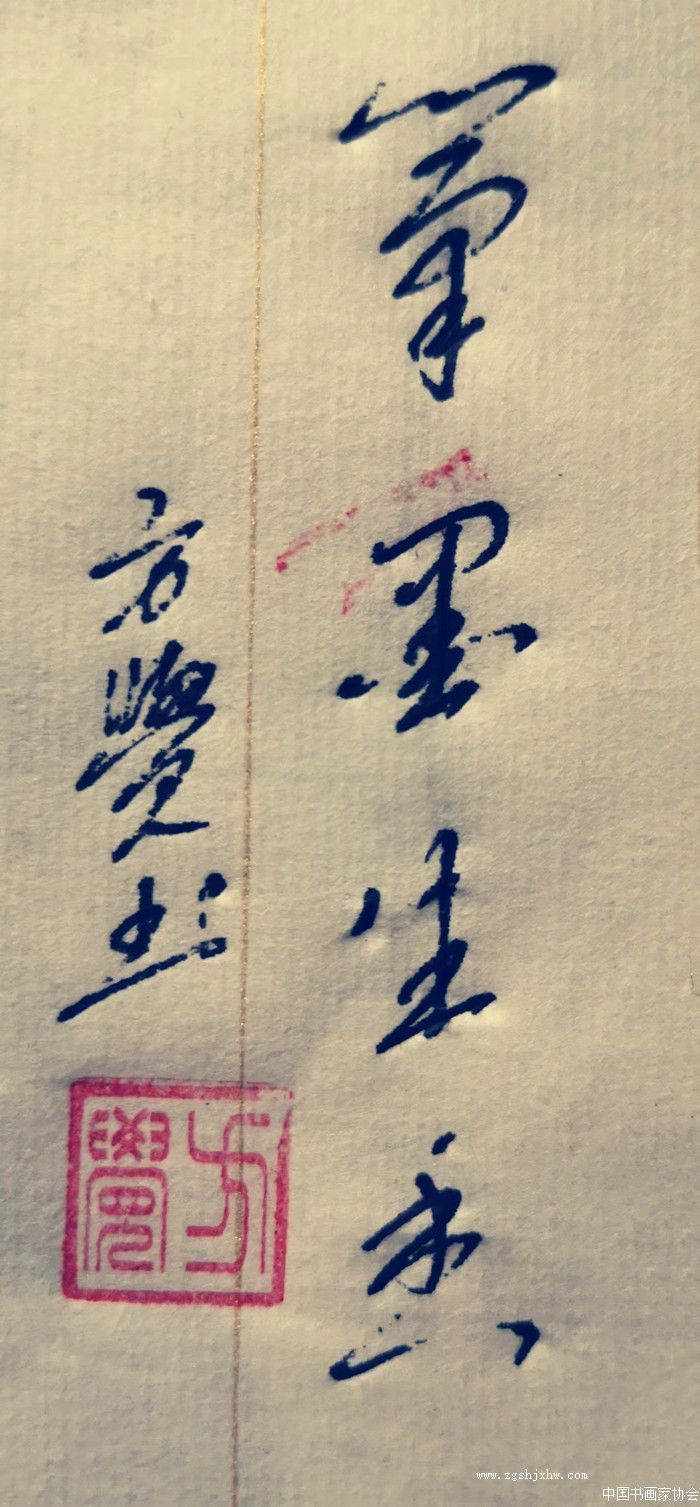 筆墨生香
方覺书
方覺
www.zgshjxhw.com
中国书画家协会